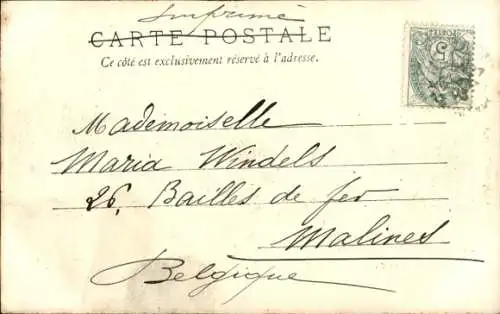 Imprimé
CARTE POSTALE
Ce côté est exclusivement réservé à l'adresse.
5
Mademoiselle
Maria Windels
26, Bailles de fer
Malines
Belgique